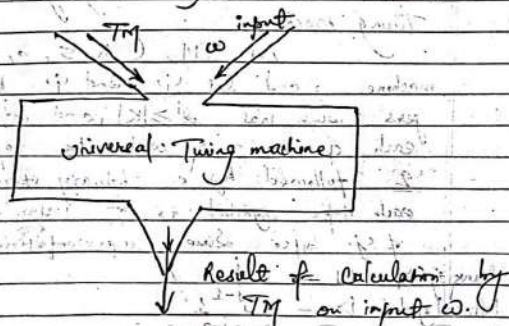 TM input
ω
Universal Turing machine
Result of calculation by
TM on input ω.